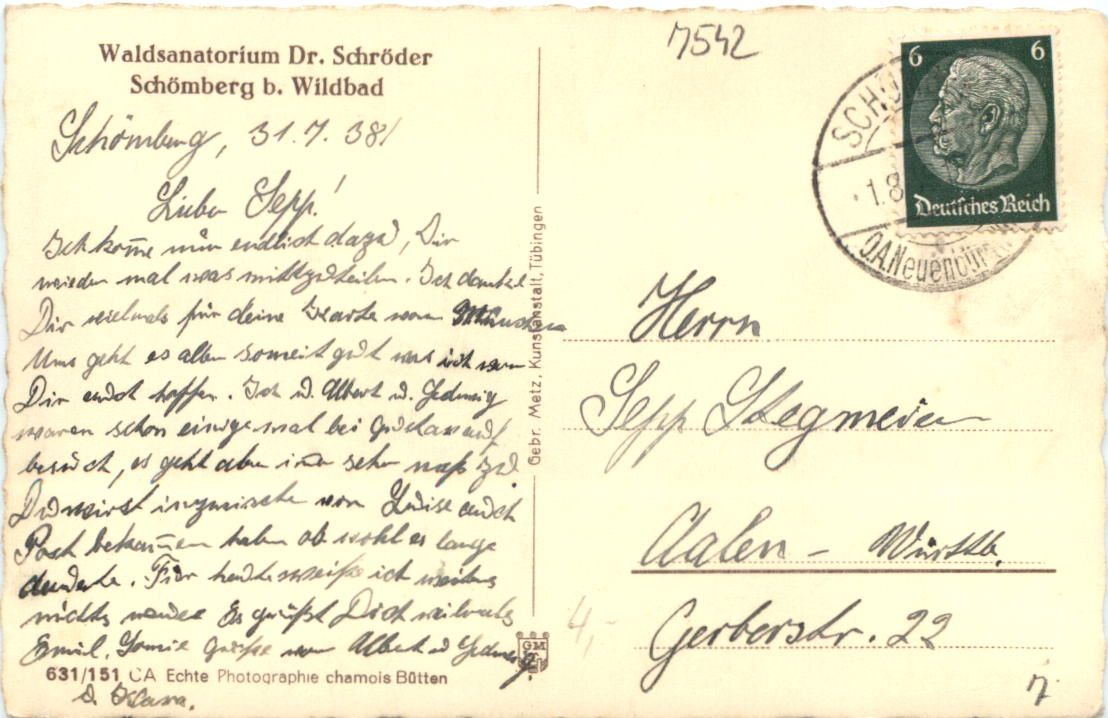 Waldsanatorium Dr. Schröder
Schömberg b. Wildbad
Schömberg, 31.7.38
Lieber Sepp!
Ich kom̄e nun endlich dazu, Dir
wieder mal was mitzuteilen. Ich danke
Dir vielmals für deine Karte von
Uns geht es allen soweit gut was ich von
Dir auch hoffe. Ich u. Albert u. Hedwig
waren schon einige mal bei Gustav auf
besuch, es geht aber im̄er sehr naß zu.
Du wirst inzwische von Luise auch
Post bekom̄en haben ob wohl es lange
dauerte. Für heute weiß ich weiter
nichts neues Es grüßt Dich vielmals
Emil. Sowie Grüße von Albert u Hedwig.
u. Klara.
631/151 CA Echte Photographie chamois Bütten
Gebr. Metz, Kunstanstalt, Tübingen
GM
7542
6 6
Deutsches Reich
SCHÖ
1.8
O.A. Neuenbür
Herrn
Sepp Stegmeier
Aalen - Württb.
Gerberstr. 22
4,-
7